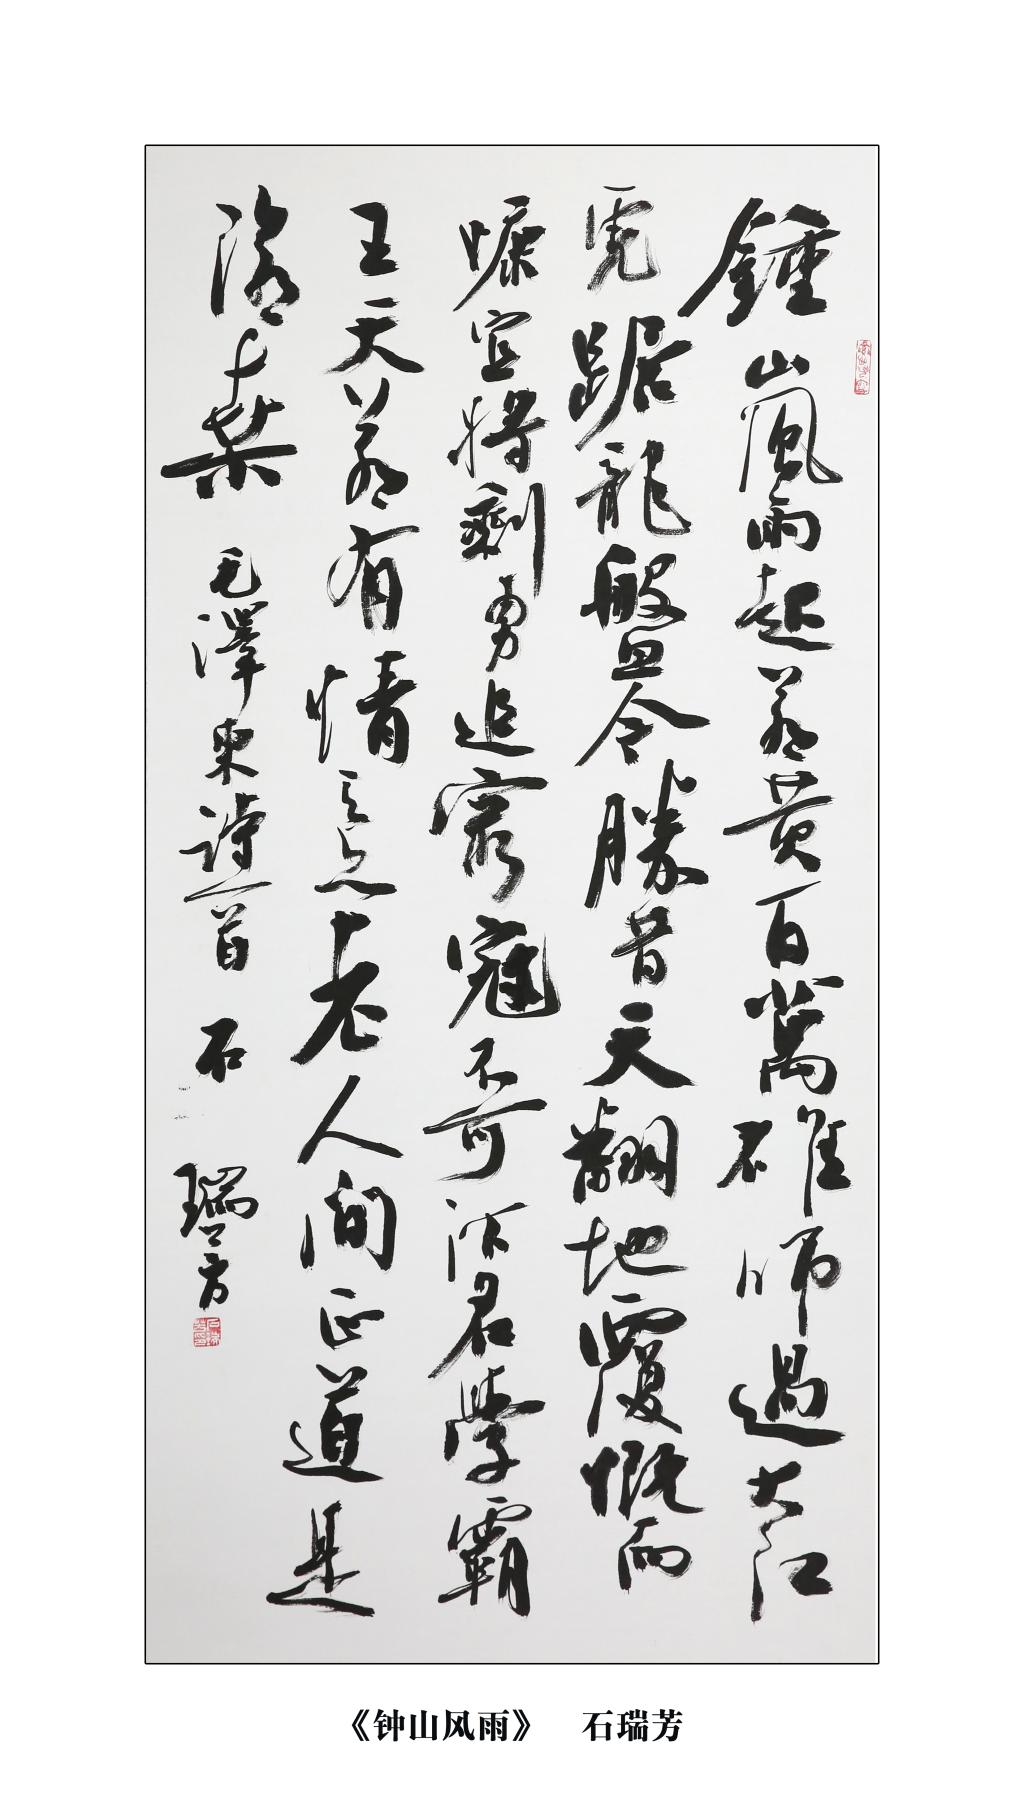 鍾山風雨起蒼黃百萬雄師過大江
虎踞龍盤今勝昔天翻地覆慨而
慷宜將剩勇追窮寇不可沽名學霸
王天若有情天亦老人間正道是
滄桑 毛澤東詩一首 石瑞芳
《钟山风雨》 石瑞芳